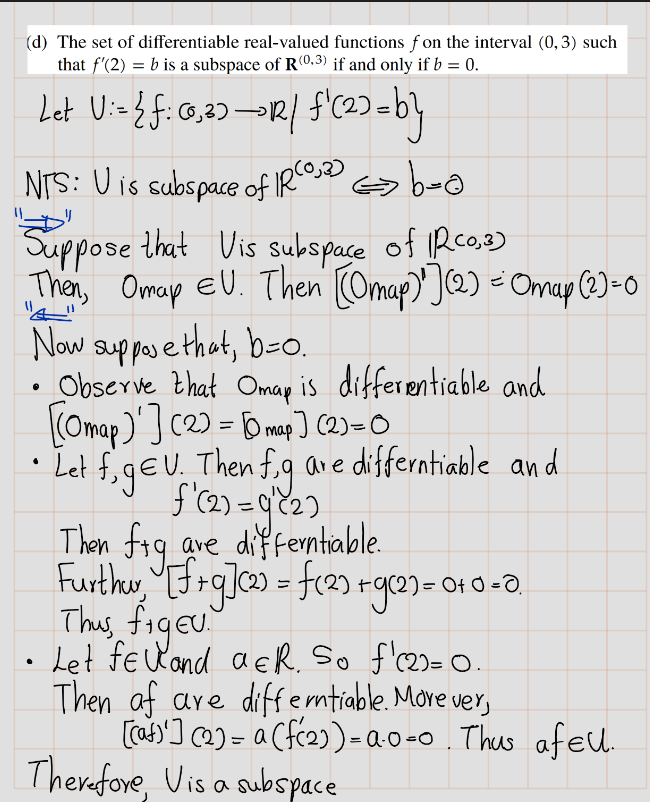 (d) The set of differentiable real-valued functions f on the interval (0, 3) such
that f′(2) = b is a subspace of R^(0,3) if and only if b = 0.
Let U:={f:(0,3)→R/ f'(2)=b}
NTS: U is subspace of R^(0,3) ⇔ b=0
"⇒"
Suppose that U is subspace of R(0,3)
Then, 0map ∈U. Then [(0map)'](2) = 0map(2)=0
"⇐"
Now suppose that, b=0.
• Observe that 0map is differentiable and
[(0map)'](2) = [0map](2)=0
• Let f,g∈U. Then f,g are differntiable and
f'(2)=g'(2)
Then f+g are differntiable.
Further, [f+g](2) = f(2)+g(2)= 0+0=0.
Thus, f+g∈U.
• Let f∈U and a∈R. So f'(2)=0.
Then af are differntiable. Morever,
[(af)'](2) = a(f'(2))=a·0=0. Thus af∈U.
Therefore, U is a subspace